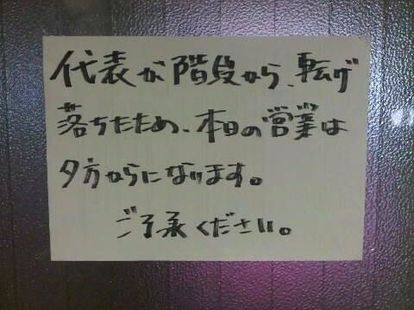 代表が階段から、転げ
落ちたため、本日の営業は
夕方からになります。
ご了承ください。